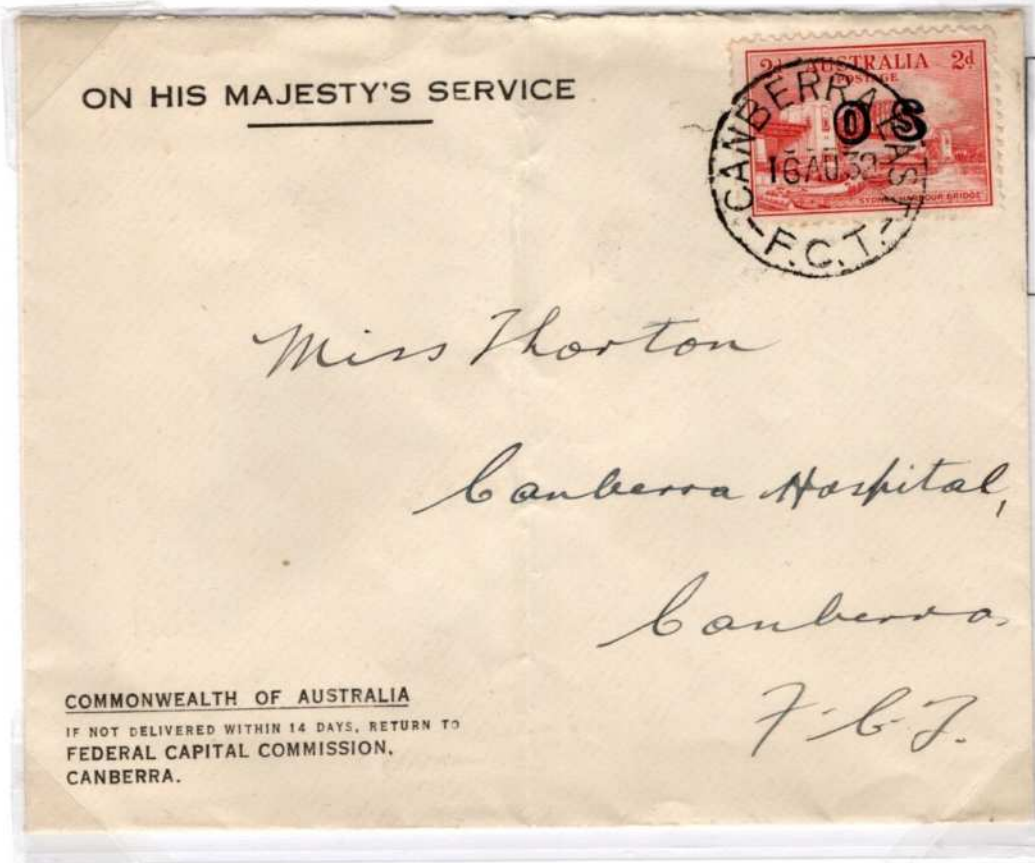 ON HIS MAJESTY'S SERVICE
2d AUSTRALIA 2d
POSTAGE
OS
SYDNEY HARBOUR BRIDGE
CANBERRA EAST
16 AU 32
F.C.T.
Miss Thorton
Canberra Hospital,
Canberra.
F.C.T.
COMMONWEALTH OF AUSTRALIA
IF NOT DELIVERED WITHIN 14 DAYS, RETURN TO
FEDERAL CAPITAL COMMISSION,
CANBERRA.